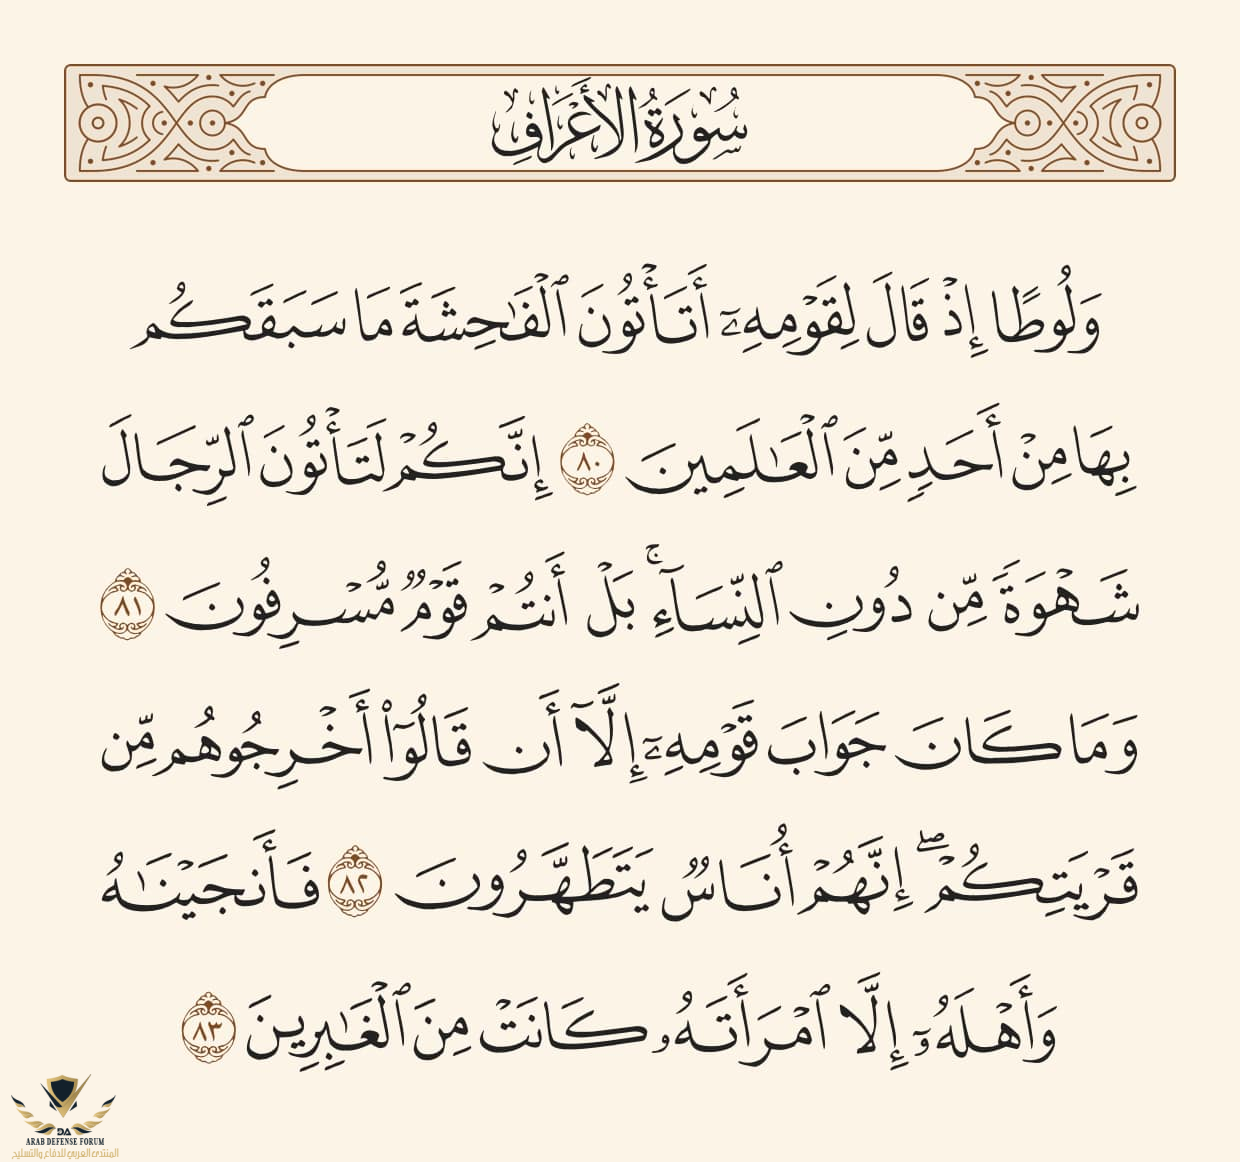 سُورَةُ الأَعْرَافِ
وَلُوطًا إِذۡ قَالَ لِقَوۡمِهِۦٓ أَتَأۡتُونَ ٱلۡفَٰحِشَةَ مَا سَبَقَكُم
بِهَا مِنۡ أَحَدٖ مِّنَ ٱلۡعَٰلَمِينَ ٨٠ إِنَّكُمۡ لَتَأۡتُونَ ٱلرِّجَالَ
شَهۡوَةٗ مِّن دُونِ ٱلنِّسَآءِۚ بَلۡ أَنتُمۡ قَوۡمٞ مُّسۡرِفُونَ ٨١
وَمَا كَانَ جَوَابَ قَوۡمِهِۦٓ إِلَّآ أَن قَالُوٓاْ أَخۡرِجُوهُم مِّن
قَرۡيَتِكُمۡۖ إِنَّهُمۡ أُنَاسٞ يَتَطَهَّرُونَ ٨٢ فَأَنجَيۡنَٰهُ
وَأَهۡلَهُۥٓ إِلَّا ٱمۡرَأَتَهُۥ كَانَتۡ مِنَ ٱلۡغَٰبِرِينَ ٨٣
DA
ARAB DEFENSE FORUM
المنتدى العربي للدفاع والتسليح